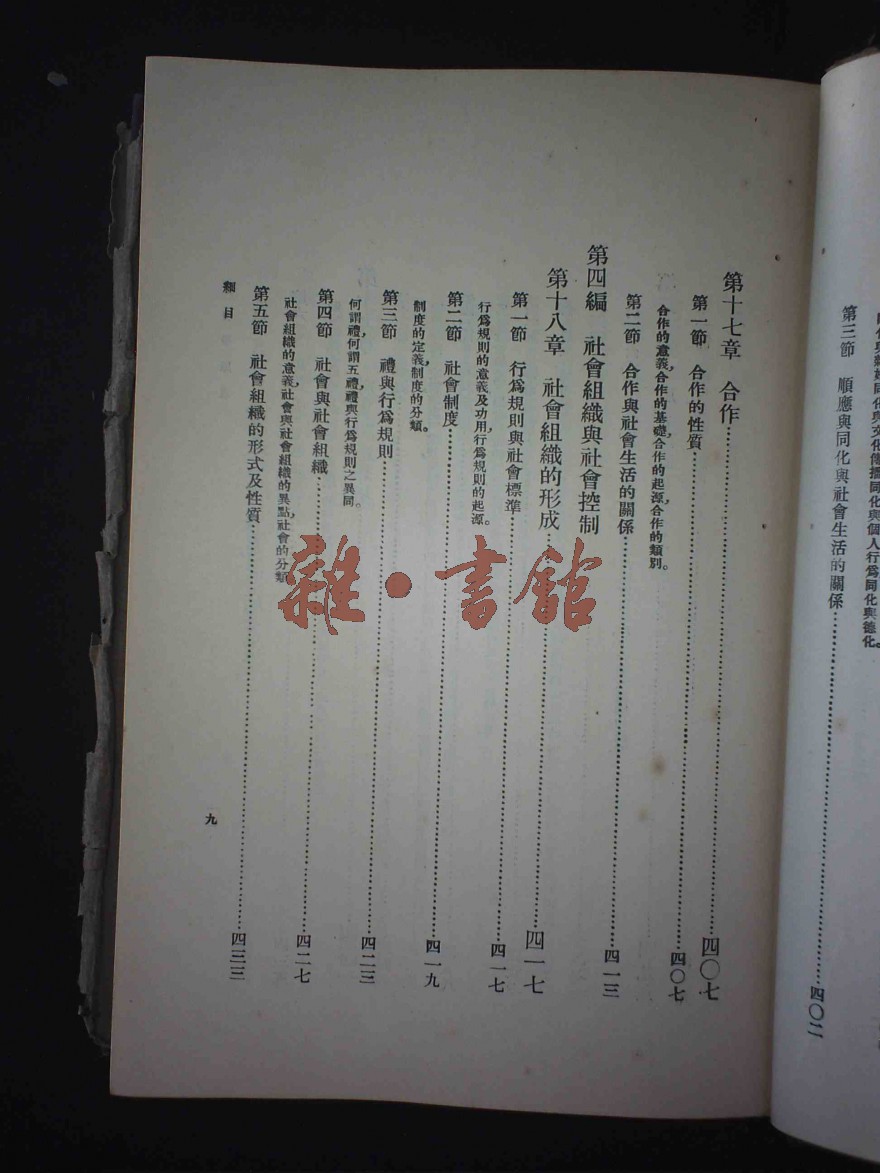 第三節　順應與同化與社會生活的關係……四〇二
第十七章　合作……四〇七
第一節　合作的性質……四〇七
合作的意義，合作的基礎，合作的起源，合作的類別。
第二節　合作與社會生活的關係……四一三
第四編　社會組織與社會控制
第十八章　社會組織的形成……四一七
第一節　行爲規則與社會標準……四一七
行爲規則的意義及功用，行爲規則的起源。
第二節　社會制度……四一九
制度的定義，制度的分類。
第三節　禮與行爲規則……四二三
何謂禮，何謂五禮，禮與行爲規則之異同。
第四節　社會與社會組織……四二七
社會組織的意義，社會與社會組織的異點，社會的分類
第五節　社會組織的形式及性質……四三三
細目
九
雜·書館